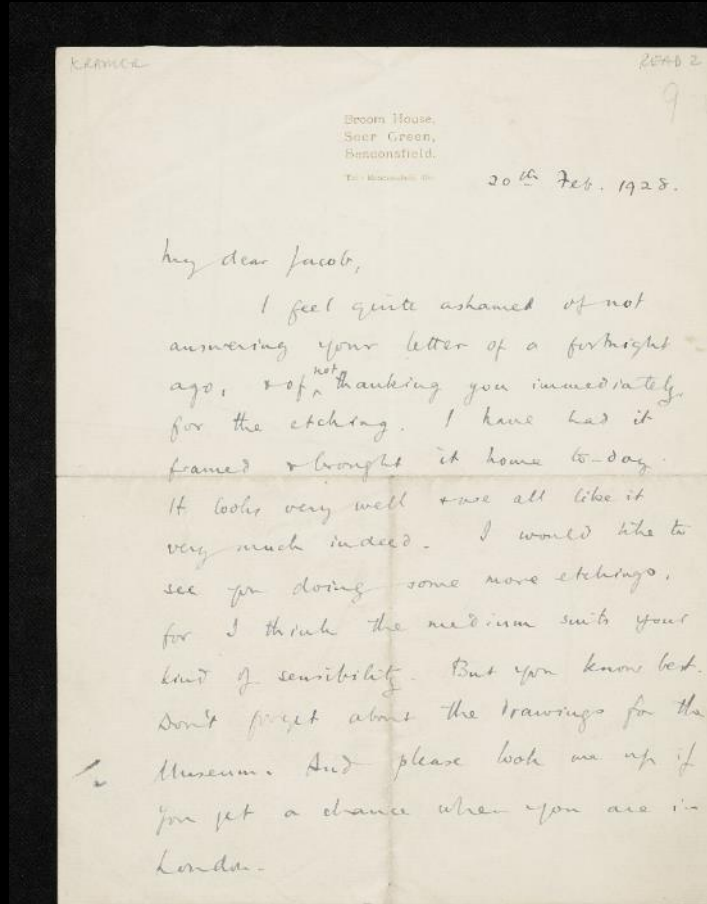 KRAMER
READ 2
9
Broom House,
Seer Green,
Beaconsfield.
20th Feb. 1928.
My dear Jacob,
I feel quite ashamed of not
answering your letter of a fortnight
ago, & of not thanking you immediately
for the etching. I have had it
framed & brought it home to-day.
It looks very well & we all like it
very much indeed. I would like to
see you doing some more etchings,
for I think the medium suits your
kind of sensibility. But you know best.
Don't forget about the drawings for the
Museum. And please look me up if
you get a chance when you are in
London.